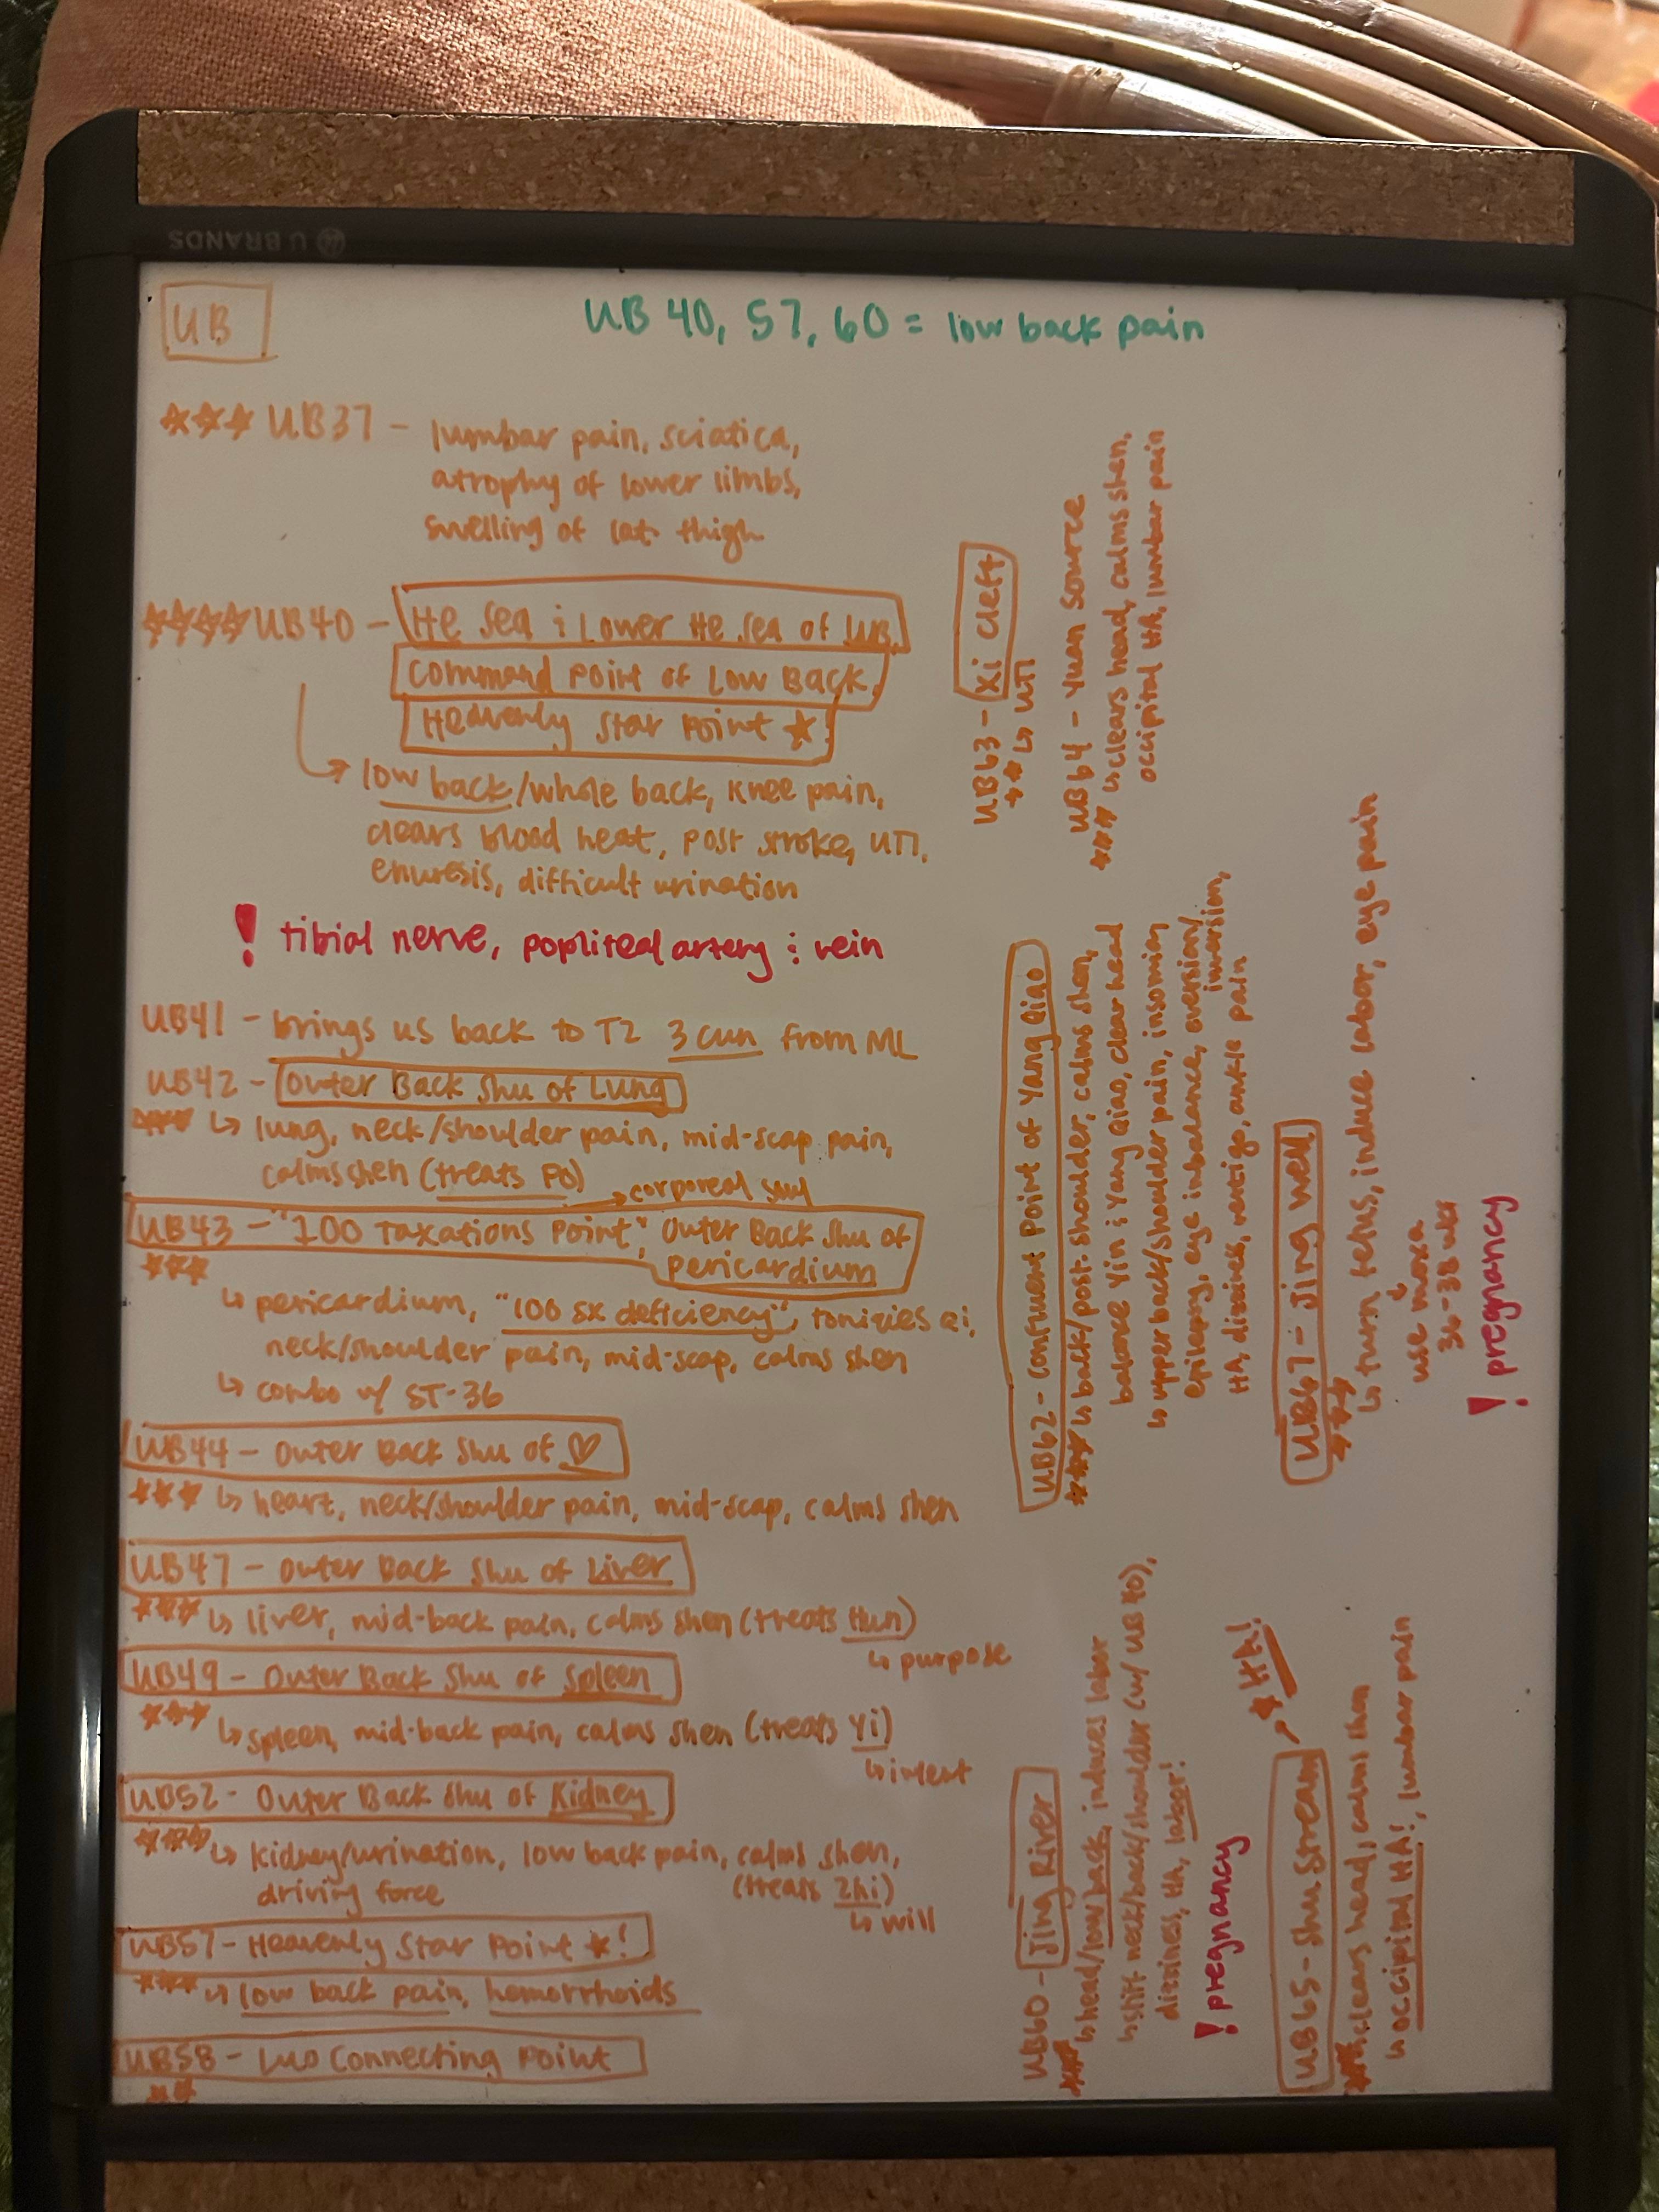 U BRANDS
UB
UB 40, 57, 60 = low back pain
☆☆☆ UB37 - lumbar pain, sciatica,
atrophy of lower limbs,
swelling of lat. thigh
☆☆☆☆ UB40 - He Sea & Lower He Sea of UB,
Command Point of Low Back,
Heavenly Star Point ☆
↳ low back/whole back, knee pain,
clears blood heat, post stroke, UTI,
enuresis, difficult urination
! tibial nerve, popliteal artery & vein
UB41 - brings us back to T2 3 cun from ML
UB42 - Outer Back Shu of Lung
☆☆☆ ↳ lung, neck/shoulder pain, mid-scap pain,
calms shen (treats Po)
→ corporeal soul
UB43 - "100 Taxations Point", Outer Back Shu of
Pericardium
☆☆☆
↳ pericardium, "100 sx deficiency", tonizies Qi,
neck/shoulder pain, mid-scap, calms shen
↳ combo w/ ST-36
UB44 - Outer Back Shu of ♡
☆☆☆ ↳ heart, neck/shoulder pain, mid-scap, calms shen
UB47 - Outer Back Shu of Liver
☆☆☆ ↳ liver, mid-back pain, calms shen (treats Hun)
↳ purpose
UB49 - Outer Back Shu of Spleen
☆☆☆ ↳ spleen, mid-back pain, calms shen (treats Yi)
↳ intent
UB52 - Outer Back Shu of Kidney
☆☆☆ ↳ kidney/urination, low back pain, calms shen,
driving force (treats Zhi)
↳ will
UB57 - Heavenly Star Point ☆!
☆☆☆ ↳ low back pain, hemorrhoids
UB58 - Luo Connecting Point
☆☆
UB60 - Jing River
☆☆☆ ↳ head/low back, induces labor
↳ stiff neck/back/shoulder (w/ UB40),
dizzines, HA, labor!
! pregnancy
UB62 - Confluent Point of Yang Qiao
☆☆☆☆ ↳ back/post. shoulder, calms shen,
balance Yin & Yang Qiao, clear head
↳ upper back/shoulder pain, insomnia
epilepsy, eye imbalance, eversion/
inversion,
HA, dizzines, vertigo, ankle pain
UB63 - Xi Cleft
☆☆ ↳ UTI
UB64 - Yuan Source
☆☆☆ ↳ clears head, calms shen,
occipital HA, lumbar pain
UB65 - Shu Stream → ☆ HA!
☆☆ ↳ clears head, calms shen
↳ occipital HA!, lumbar pain
UB67 - Jing Well
☆☆☆
↳ turn fetus, induce labor, eye pain
↓
use moxa
36-38 wks
! pregnancy